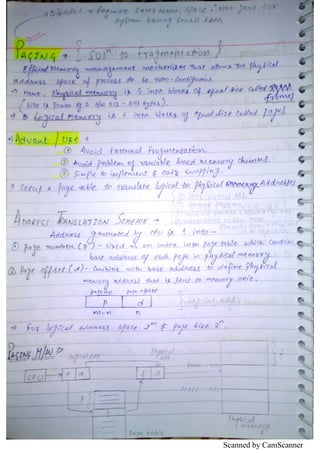 → Require extra mem. space : Not good for
system having small RAM.
PAGING → { SOLⁿ to fragmentation }
Efficient Memory management mechanism that allows the physical
address space of process to be non-contiguous.
→ Here, Physical memory is ÷ into blocks of equal size called frames
(Size is power of 2, b/w 512 - 8192 bytes).
→ Logical memory is ÷ into blocks of equal size called pages
Advant / USE →
① Avoid External fragmentation
② Avoid problem of variable sized memory chunks.
③ Simple to implement & easy swapping.
→ Setup a page table to translate logical to physical Addresses
ADDRESS TRANSLATION SCHEME →
Address generated by CPU is ÷ into -
① Page number (p) - Used as an index into page table which contains
base address of each page in physical memory.
② Page offset (d) - Combine with base address to define physical
memory address that is sent to memory unit.
page no. page offset
p d
m-n n
→ For logical address space 2ᵐ & page size 2ⁿ.
PAGING H/W →
Physical
CPU p d f d
p
f
Page table
Physical
memory
Scanned by CamScanner